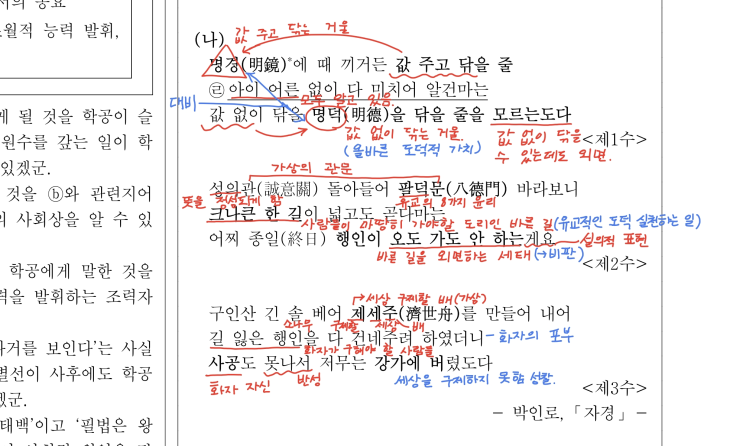 서의 공묘
초월적 능력 발휘,
게 될 것을 학공이 슬
원수를 갚는 일이 학
있겠군.
것을 ⓑ와 관련지어
의 사회상을 알 수 있
학공에게 말한 것을
력을 발휘하는 조력자
과거를 보인다'는 사실
별선이 사후에도 학공
겠군.
태백'이고 '필법은 왕
(나)
값 주고 닦는 거울
명경(明鏡)*에 때 끼거든 값 주고 닦을 줄
㉣ 아이 어른 없이 다 미치어 알건마는
대비
모두 알고 있음.
값 없이 닦을 명덕(明德)을 닦을 줄을 모르는도다
값 없이 닦는 거울.
(올바른 도덕적 가치)
값 없이 닦을
수 있는데도 외면.
<제1수>
가상의 관문
성의관(誠意關) 돌아들어 팔덕문(八德門) 바라보니
뜻을 정성되게 함
유교의 8가지 윤리
크나큰 한 길이 넓고도 곧다마는
사람들이 마땅히 가야할 도리인 바른 길(유교적인 도덕 실천하는 일)
어찌 종일(終日) 행인이 오도 가도 안 하는게요
설의적 표현
바른 길을 외면하는 세태(→비판)
<제2수>
세상 구제할 배(가상)
구인산 긴 솔 베어 제세주(濟世舟)를 만들어 내어
소나무 구제할 세상 배
길 잃은 행인을 다 건네주려 하였더니
- 화자의 포부
화자가 구해야 할 사람들
사공도 못나서 저무는 강가에 버렸도다
화자 자신
반성
세상을 구제하지 못함 성찰.
<제3수>
- 박인로, 「자경」 -